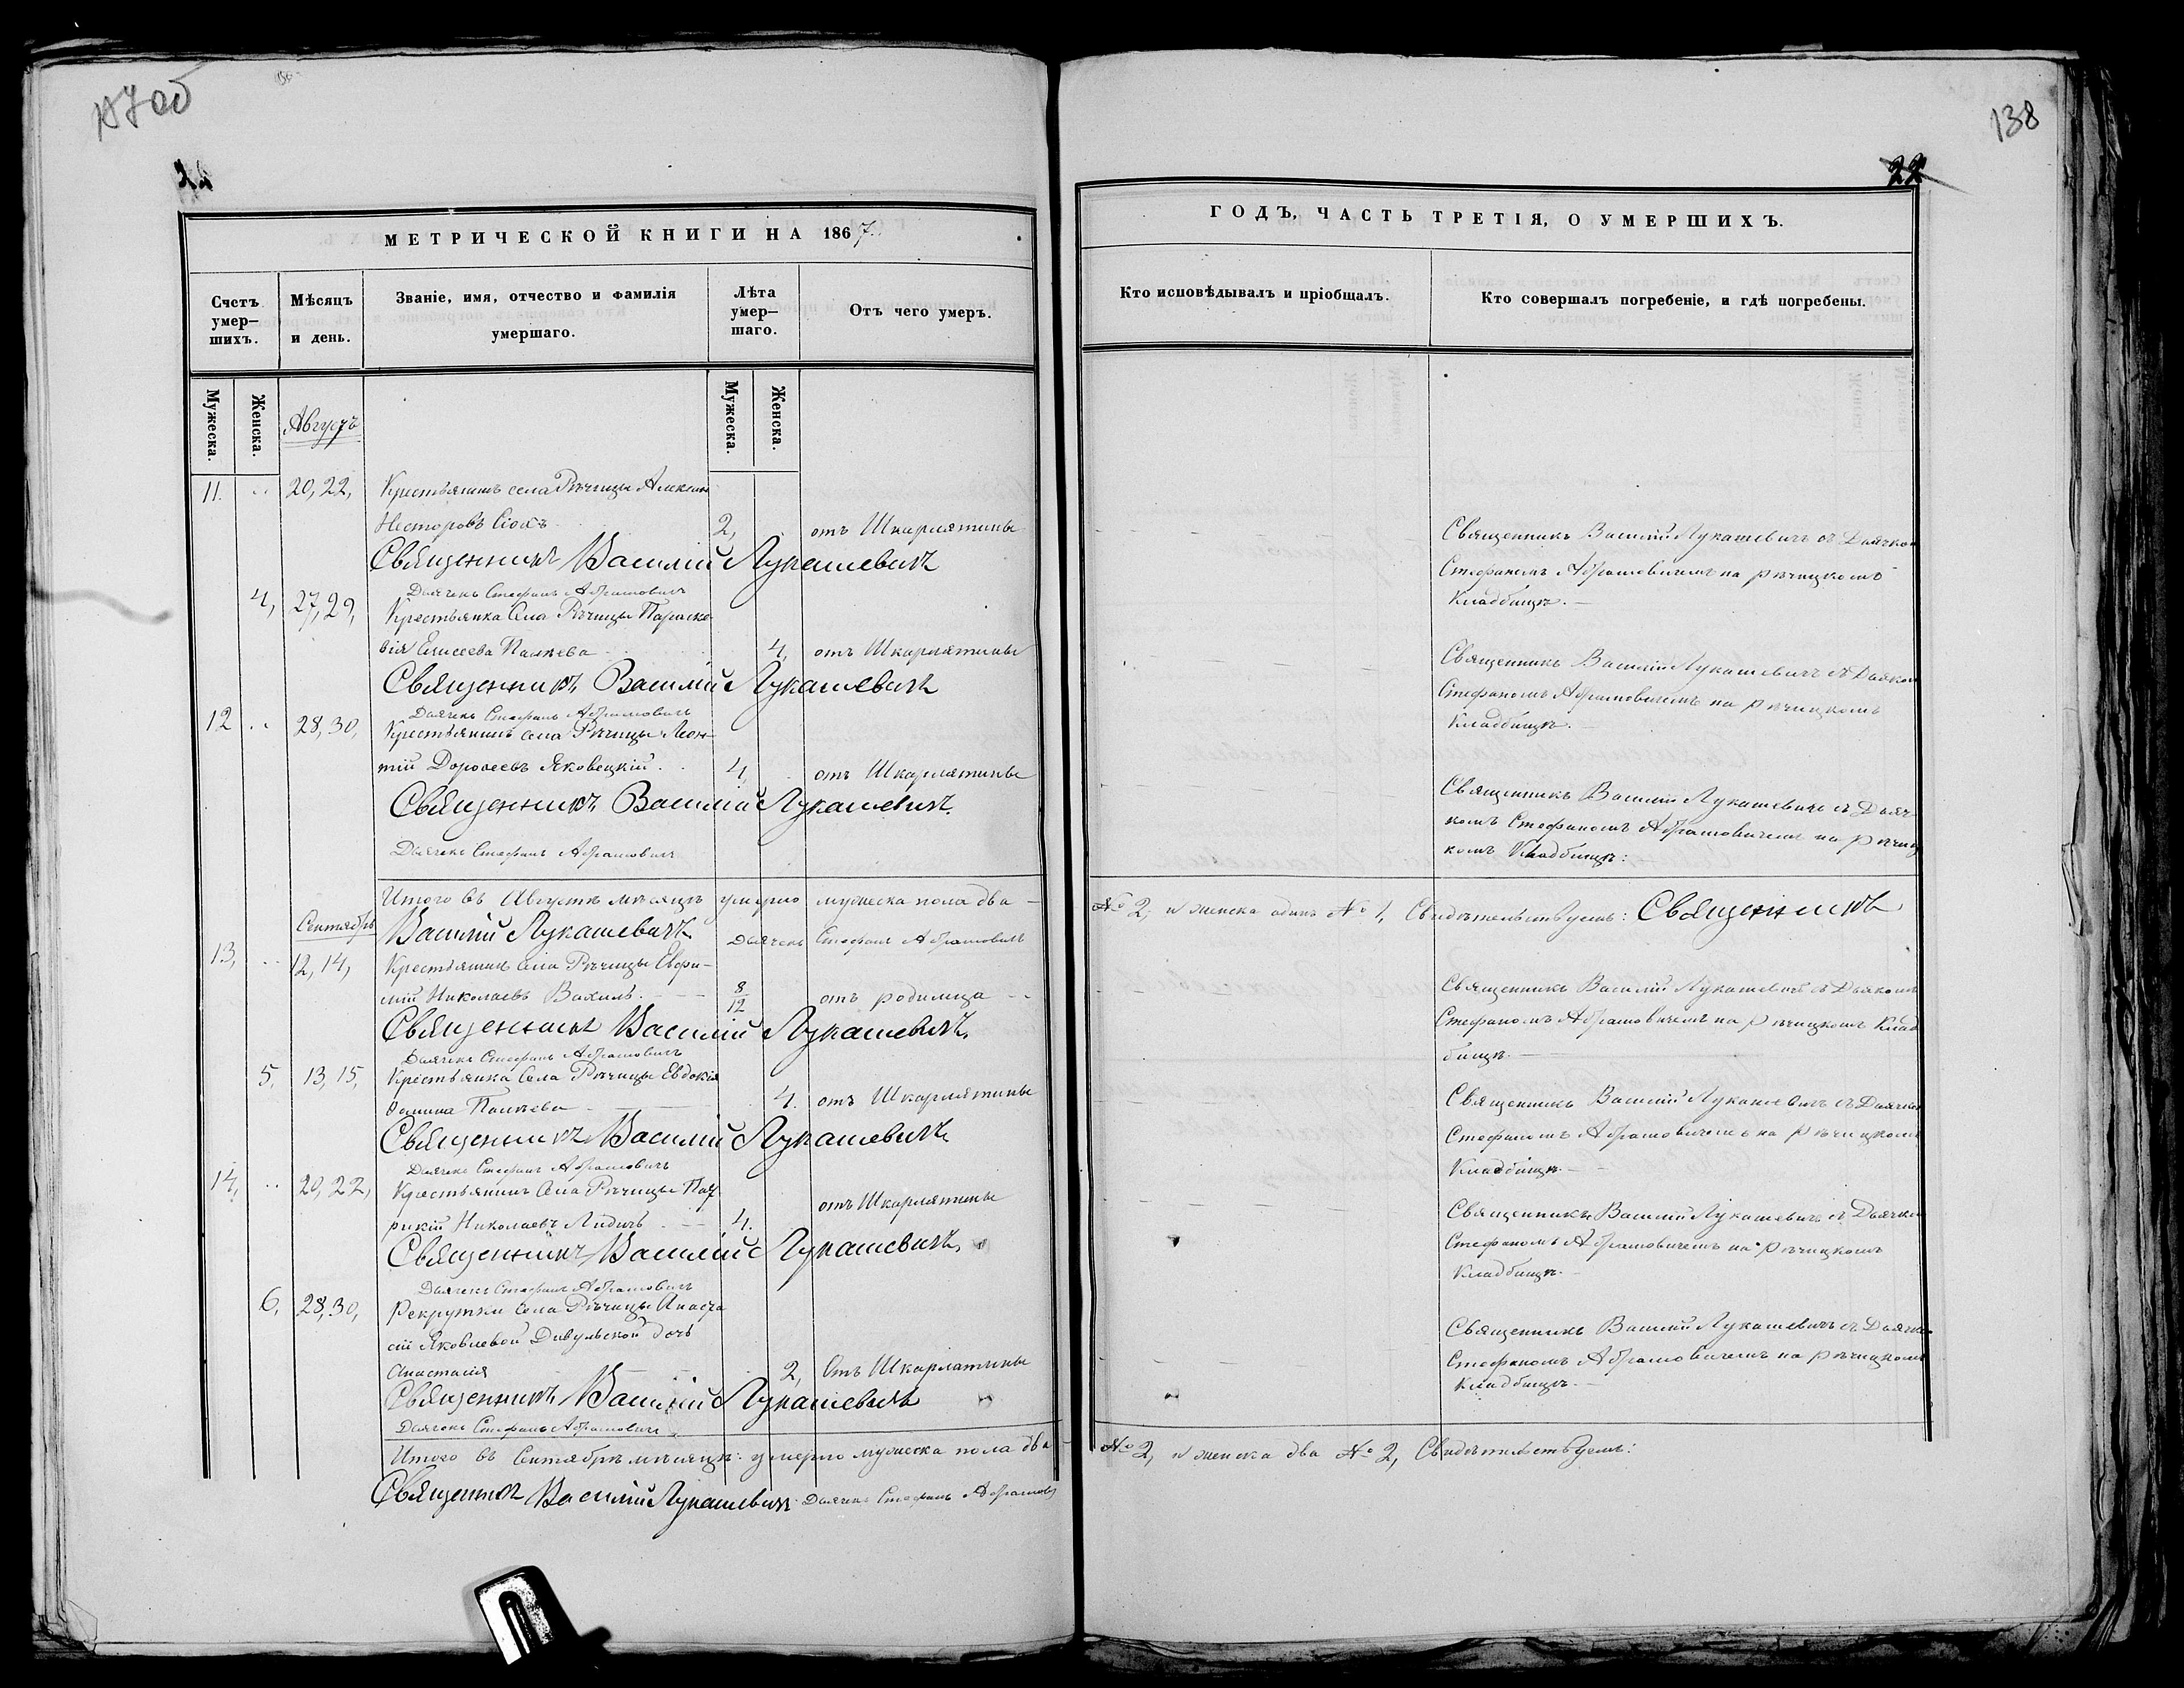 138
22
МЕТРИЧЕСКОЙ КНИГИ НА 1867
ГОДЪ, ЧАСТЬ ТРЕТІЯ, О УМЕРШИХЪ.
Счетъ умер-шихъ.
Мѣсяцъ и день.
Званіе, имя, отчество и фамилія умершаго.
Лѣта умер-шаго.
Отъ чего умеръ.
Кто исповѣдывалъ и пріобщалъ.
Кто совершалъ погребеніе, и гдѣ погребены.
Мужеска.
Женска.
Мужеска.
Женска.
Августъ
11. 20, 22, Крестьянинъ села Рѣчицы
Несторовъ 2, отъ Шкарлятины
Священникъ Василій Лукашевичъ
Дьячекъ Стефанъ Абрамовичъ
Священникъ Василій Лукашевичъ съ Дьячко
Стефаномъ Абрамовичемъ на рѣчицкомъ
Кладбищѣ.
4, 27, 29, Крестьянка Села Рѣчицы Параске
вія Елисеева 4, отъ Шкарлятины
Священникъ Василій Лукашевичъ
Дьячекъ Стефанъ Абрамовичъ
Священникъ Василій Лукашевичъ съ Дьячко
Стефаномъ Абрамовичемъ на рѣчицкомъ
Кладбищѣ.
12 28, 30, Крестьянинъ села Рѣчицы Леон-
тій Дороѳеевъ Яковецкій 4, отъ Шкарлятины
Священникъ Василій Лукашевичъ
Дьячекъ Стефанъ Абрамовичъ
Священникъ Василій Лукашевичъ съ Дьяч
комъ Стефаномъ Абрамовичемъ на рѣчиц
комъ Кладбищѣ:
Итого въ Августѣ мѣсяцѣ умерло мужеска пола два —
№ 2, и женска одна № 1, Свидѣтельствуемъ: Священникъ
Василій Лукашевичъ Дьячекъ Стефанъ Абрамовичъ
Сентябрь
13, 12, 14, Крестьянинъ села Рѣчицы Евфи-
мій Николаевъ 8/12 отъ родимца
Священникъ Василій Лукашевичъ
Дьячекъ Стефанъ Абрамовичъ
Священникъ Василій Лукашевичъ съ Дьячкомъ
Стефаномъ Абрамовичемъ на рѣчицкомъ Клад
бищѣ.
5, 13, 15, Крестьянка Села Рѣчицы Евдокія
Ѳомина 4. отъ Шкарлятины
Священникъ Василій Лукашевичъ
Дьячекъ Стефанъ Абрамовичъ
Священникъ Василій Лукашевичъ съ Дьячко
Стефаномъ Абрамовичемъ на рѣчицкомъ
Кладбищѣ.
14, 20, 22, Крестьянинъ Села Рѣчицы Пат
рикій Николаевъ 4. отъ Шкарлятины
Священникъ Василій Лукашевичъ
Дьячекъ Стефанъ Абрамовичъ
Священникъ Василій Лукашевичъ съ Дьячко
Стефаномъ Абрамовичемъ на рѣчицкомъ
Кладбищѣ.
6, 28, 30, Рекрутки села Рѣчицы Анаста
сіи Яковлевой дочь
Анастасія 2, Отъ Шкарлатины
Священникъ Василій Лукашевичъ
Дьячекъ Стефанъ Абрамовичъ
Священникъ Василій Лукашевичъ съ Дьячко
Стефаномъ Абрамовичемъ на рѣчицкомъ
Кладбищѣ.
Итого въ Сентябрѣ мѣсяцѣ: умерло мужеска пола два
№ 2, и женска два № 2, Свидѣтельствуемъ:
Священникъ Василій Лукашевичъ Дьячекъ Стефанъ Абрамович